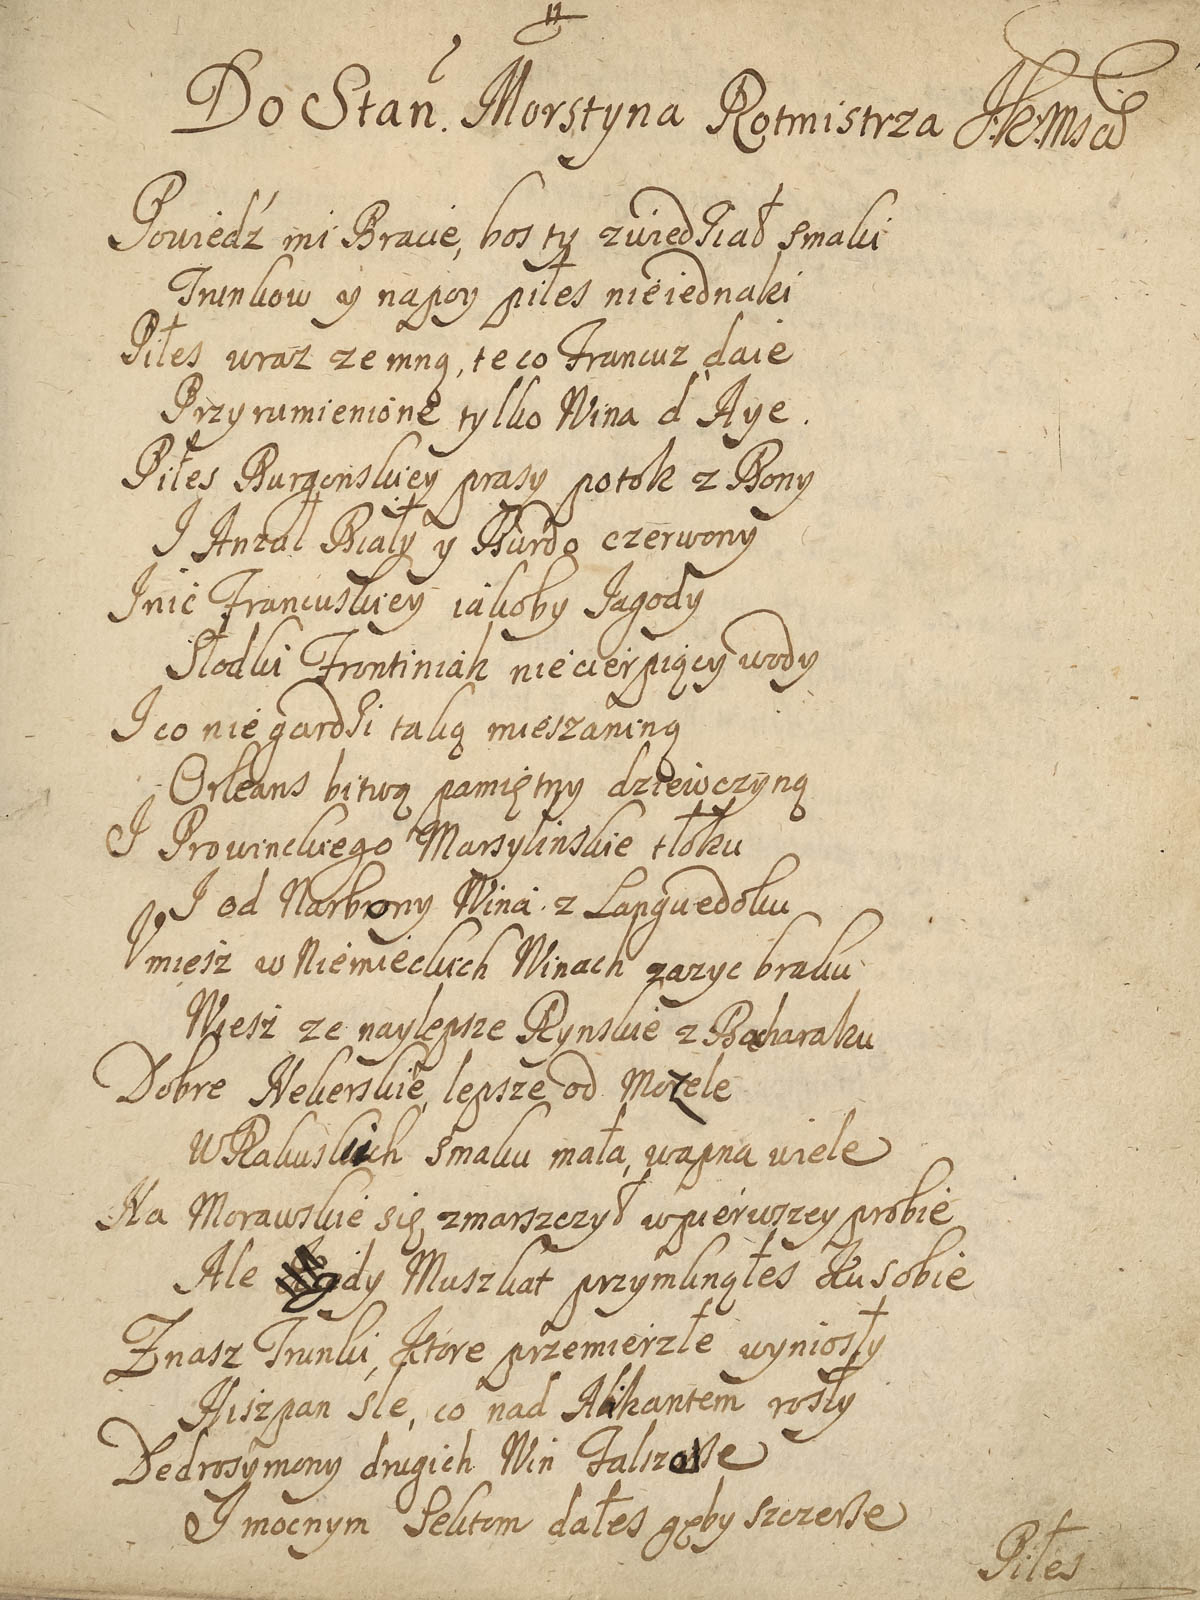 11
Do Stan. Morstyna Rotmistrza J.K.Msci
Powiedź mi Bracie, boś ty zwiedział smaki
Trunkow y napoy piłes nieiednaki
Piłes wraz ze mną, te co Francuz daie
Przyrumienione tylko Wina d'Aye.
Piłes Burgonskiey prasy potok z Bony
I Anzal Biały y Burdo czerwony
I nic Francuskiey iakoby Jagody
Słodki Frontiniak niecierpiący wody
I co nie gardzi taką mieszaniną
Orleans bitwą pamiętny dziewczyną
I Prowinckiego Marsylinskie tłoku
I od Narbony Wina z Languedoku
Vmiesz w Niemieckich Winach zazyc braku
Wiesz ze naylepsze Rynskie z Bacharaku
Dobre Nekerskie, lepsze od Mozele
W Rakuskich smaku mała, wapna wiele
Na Morawskie się zmarszczył w pierwszey probie
Ale dy Muszkat przymknąłes Ku sobie
Znasz Trunki, Ktore przemierzłe wyniosły
Hiszpan sle, co nad Alikantem rosły
Pedrosymony drugich Win Falszerze
I mocnym Sektom dałes gęby szczerze
Piłes